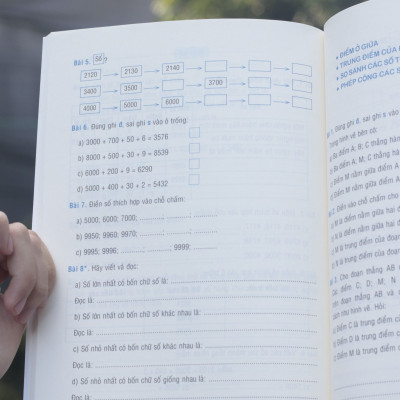 Bài 5. Số ?
2120 2130 2140
3400 3500 3700
4000 5000 6000
Bài 6. Đúng ghi đ, sai ghi s vào ô trống:
a) 3000 + 700 + 50 + 6 = 3576
b) 8000 + 500 + 30 + 9 = 8539
c) 6000 + 200 + 9 = 6290
d) 5000 + 400 + 30 + 2 = 5432
Bài 7. Điền số thích hợp vào chỗ chấm:
a) 5000; 6000; 7000; ............; ............; ............
b) 9950; 9960; 9970; ............; ............; ............
c) 9995; 9996; ............; ............; 9999; ............
Bài 8*. Hãy viết và đọc:
a) Số lớn nhất có bốn chữ số là:
Đọc là:
b) Số lớn nhất có bốn chữ số khác nhau là:
Đọc là:
c) Số nhỏ nhất có bốn chữ số khác nhau là:
Đọc là:
d) Số nhỏ nhất có bốn chữ số giống nhau là:
Đọc là:
ĐIỂM Ở GIỮA
TRUNG ĐIỂM CỦA
SO SÁNH CÁC SỐ T
PHÉP CỘNG CÁC S
1. Đúng ghi đ, sai ghi s
trong hình vẽ bên có:
Ba điểm A, B, C thẳng hàn
Ba điểm A; M; C thẳng hàn
Điểm M nằm giữa điểm A
Điểm M nằm giữa điểm A
Điền vào chỗ chấm cho
M là điểm nằm giữa hai đ
N là điểm nằm giữa hai đ
N là trung điểm của đoạn
M là trung điểm của đoạn
3. Cho đoạn thẳng AB
Các điểm C; D; M; N
trên đoạn thẳng AB và
cách như hình vẽ. Hỏi:
Điểm C là trung điểm củ
Điểm D là trung điểm củ
Điểm M là trung điểm